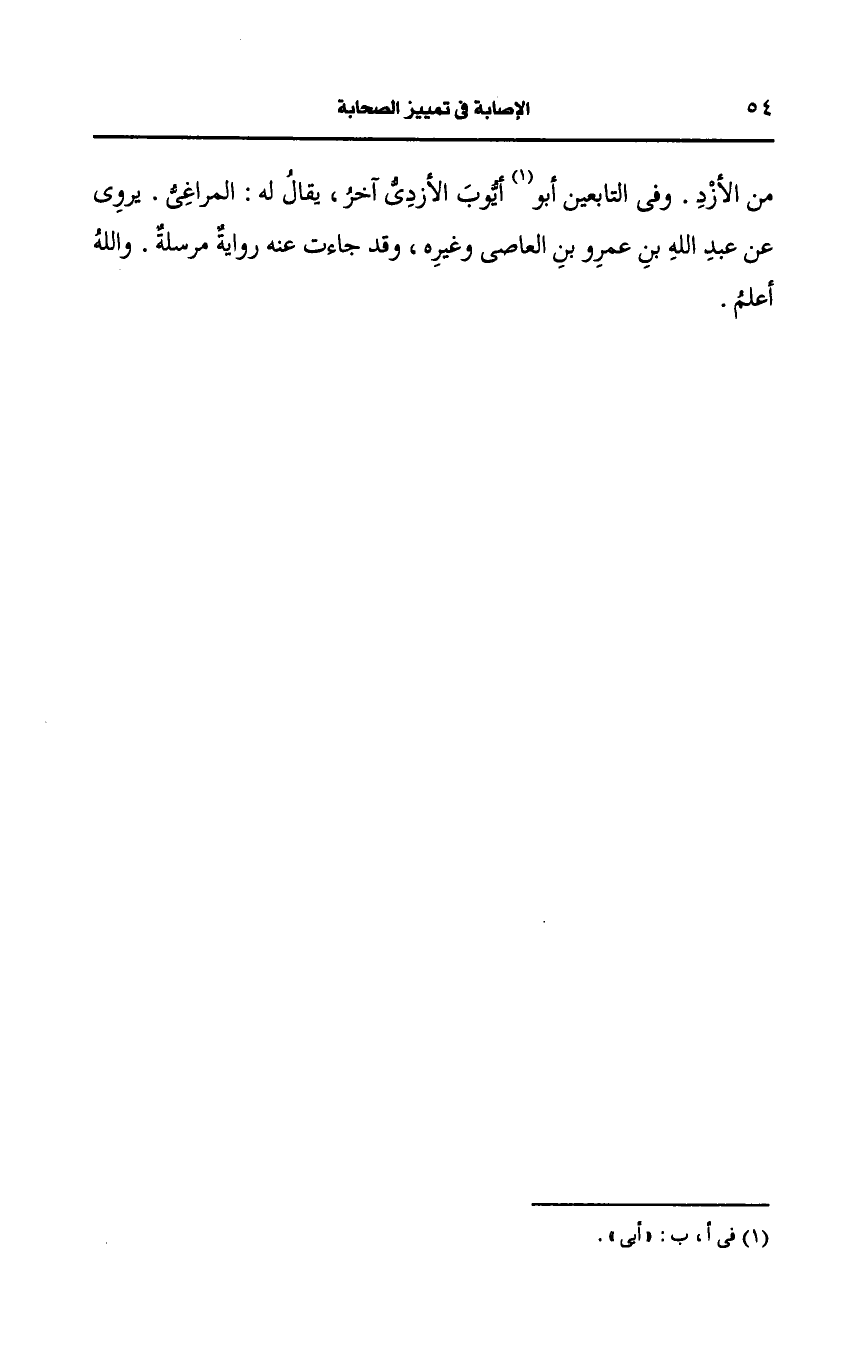 ٥٤ الإصابة فى تمييز الصحابة
من الأزْدِ . وفى التابعين أبو(١) أيُّوبَ الأزدِىُّ آخرُ ، يقالُ له : المراغِىُّ . يروِى
عن عبدِ اللهِ بنِ عمرِو بنِ العاصى وغيرِه ، وقد جاءت عنه روايةٌ مرسلةٌ . واللهُ
أعلمُ .
(١) فى أ ، ب : «أبى» .